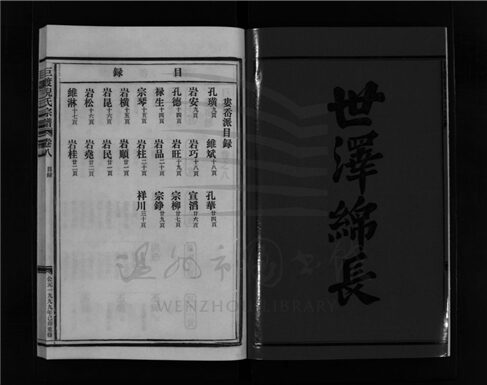 世澤綿長
目錄
婁岙派目錄
孔璜九頁 維斌十八頁 孔華廿四頁
岩安九頁 岩巧十八頁 宣滔廿六頁
孔德十四頁 岩旺十九頁 宗柳廿七頁
禄生十四頁 岩品二十頁 宗錚廿九頁
宗琴十五頁 岩柱二十頁 祥川三十頁
岩橫十五頁 岩順廿一頁
岩昆十六頁 岩民廿一頁
岩松十六頁 岩堯廿二頁
維淋十七頁 岩桂廿二頁
氏宗譜 卷八 目錄
公元一九九九年己卯重修
溫州市圖書館
WENZHOU LIBRARY